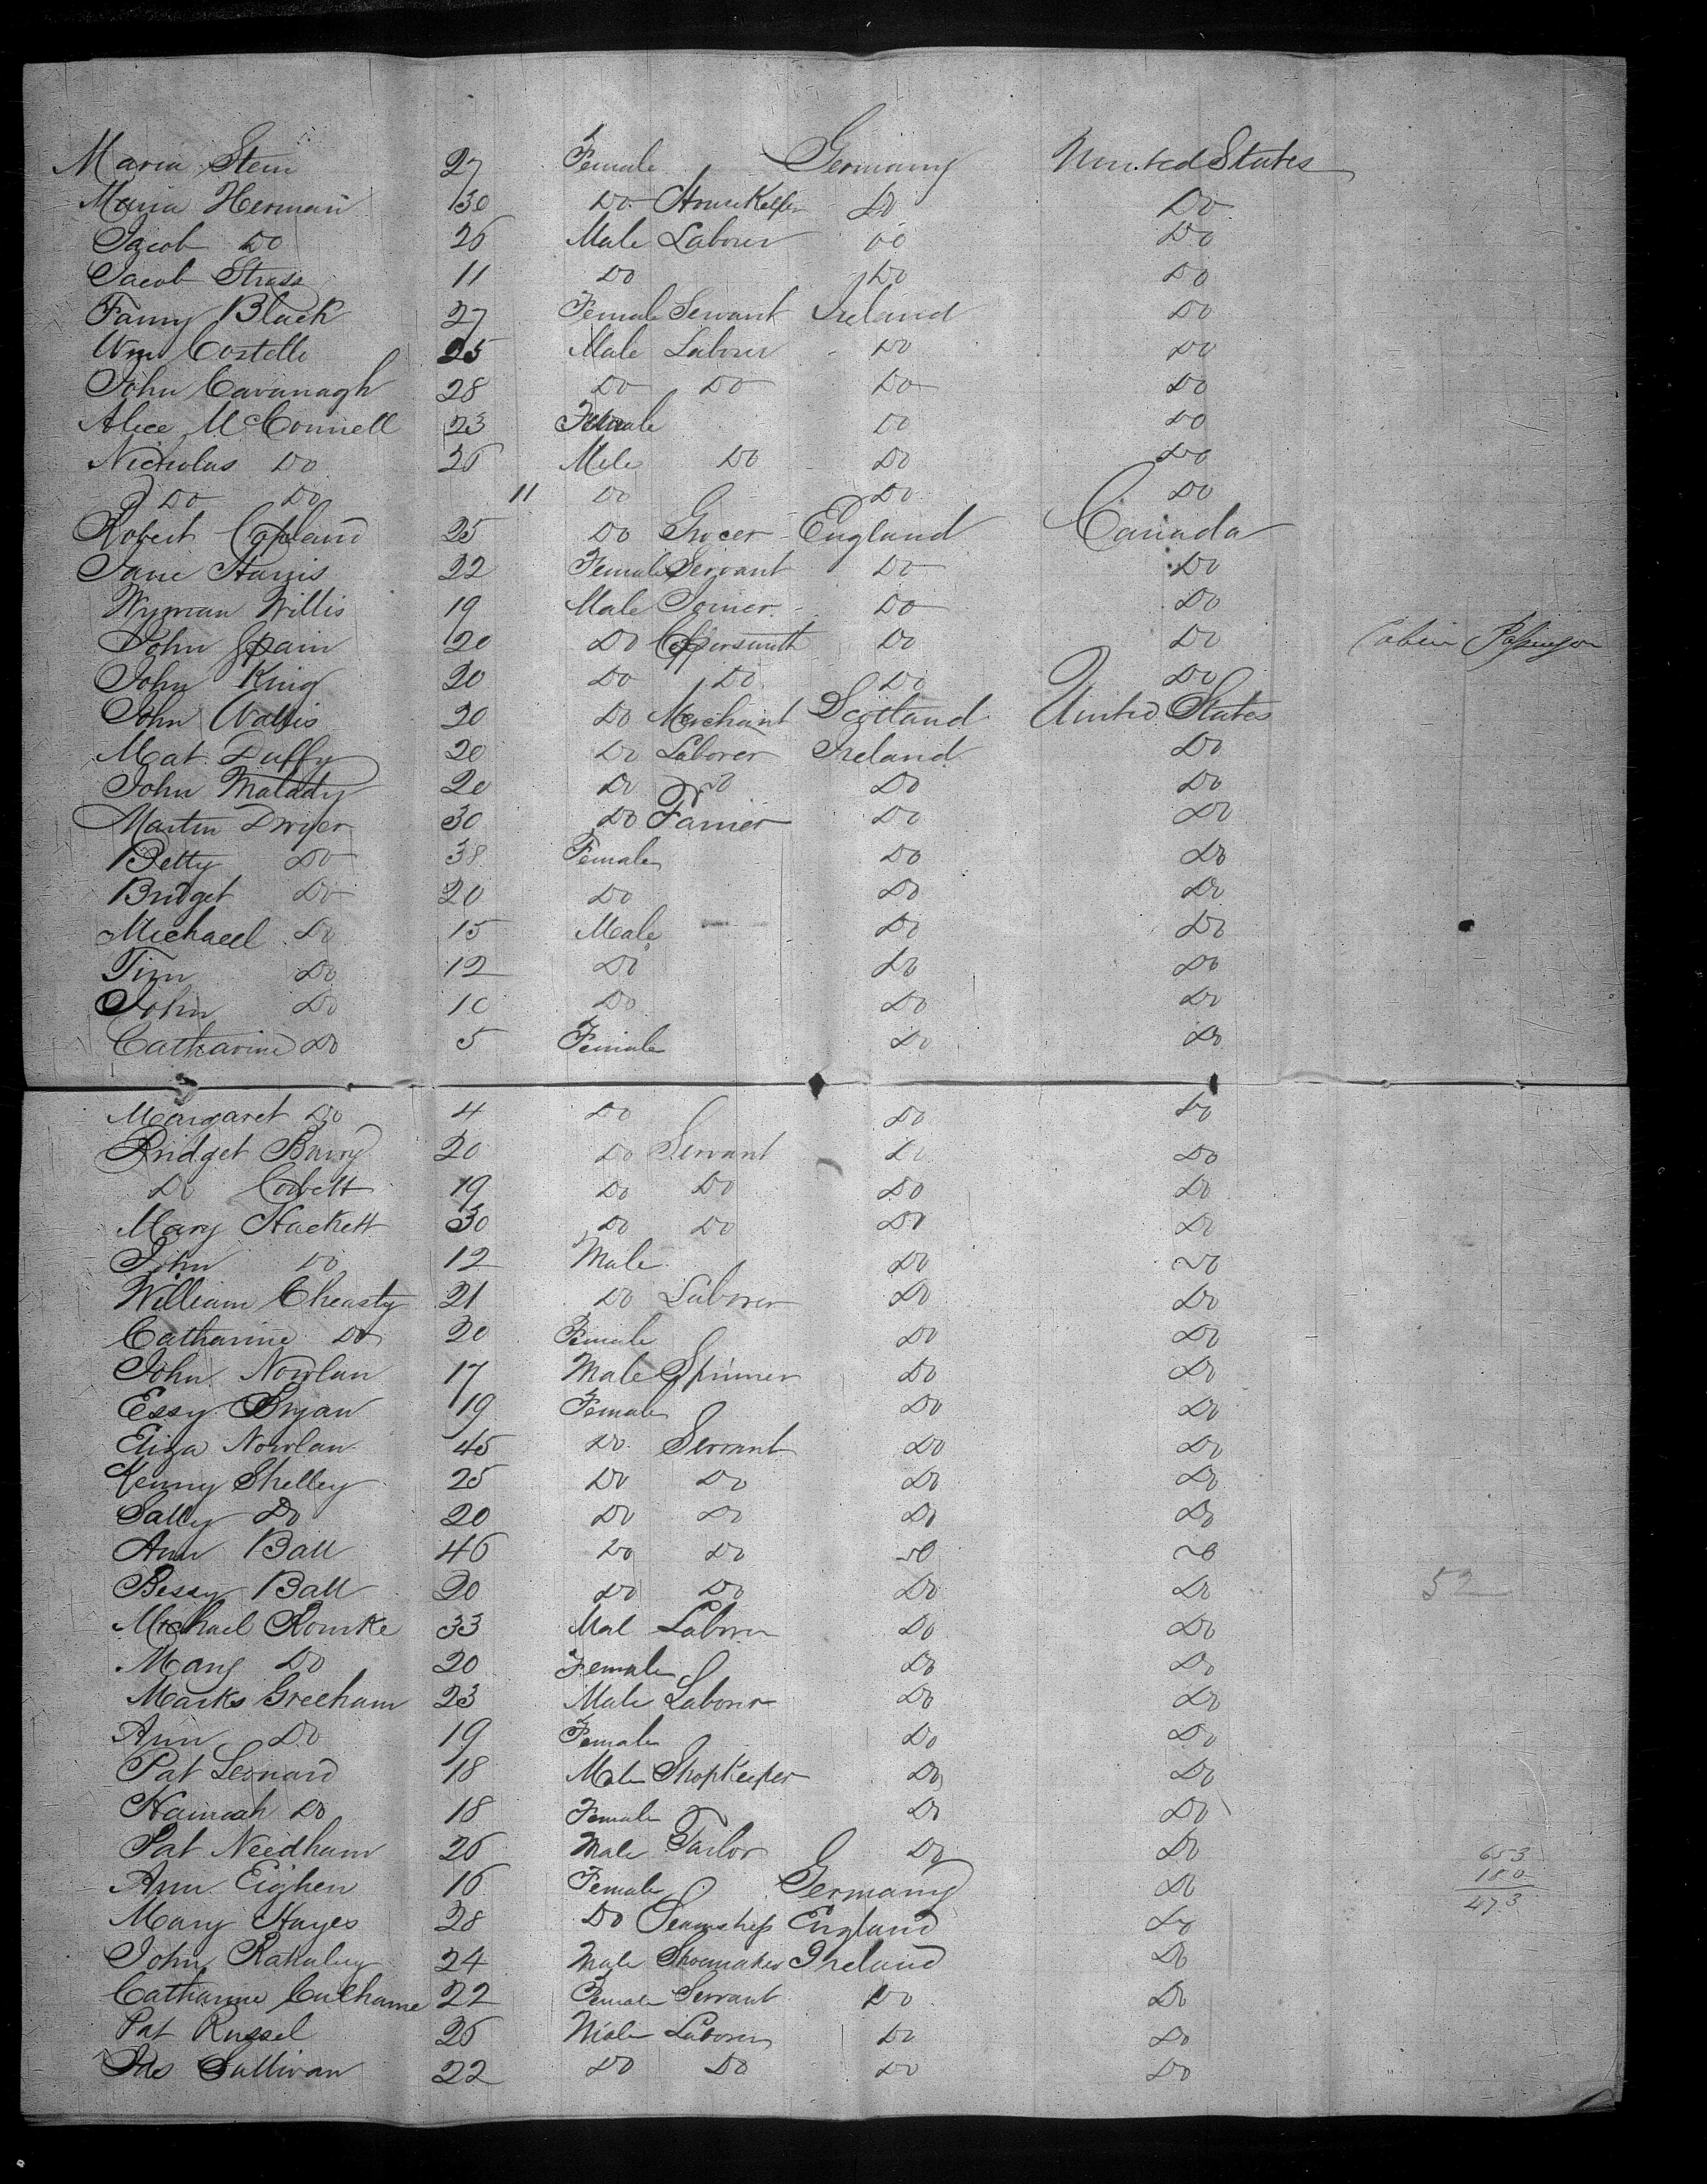 Maria Stein 27 Female Germany United States
Maria Herman 30 Do HouseKeeper Do Do
Jacob Do 26 Male Laborer Do Do
Jacob Strass 11 Do Do Do
Fanny Black 27 Female Servant Ireland Do
Wm Costello 25 Male Laborer Do Do
John Cavanagh 28 Do Do Do Do
Alice McConnell 23 Female Do Do
Nicholas Do 26 Male Do Do Do
Do Do 11 Do Do Do
Robert Copland 25 Do Grocer England Canada
Jane Harris 22 Female Servant Do Do
Wyman Willis 19 Male Joiner Do Do
John Spain 20 Do Coppersmith Do Do Cabin Passenger
John King 20 Do Do Do Do
John Wallis 20 Do Merchant Scotland United States
Mat Duffy 20 Do Laborer Ireland Do
John Malady 20 Do Do Do Do
Martin Dwyer 30 Do Famer Do Do
Betty Do 38 Female Do Do
Bridget Do 20 Do Do Do
Michael Do 15 Male Do Do
Tim Do 12 Do Do Do
John Do 10 Do Do Do
Catharine Do 5 Female Do Do
Margaret Do 4 Do Do Do
Bridget Barry 20 Do Servant Do Do
Do Corbett 19 Do Do Do Do
Mary Hackett 30 Do Do Do Do
John Do 12 Male Do Do
William Cheasty 21 Do Laborer Do Do
Catharine Do 20 Female Do Do
John Nowlan 17 Male Spinner Do Do
Essy Bryan 19 Female Do Do
Eliza Nowlan 45 Do Servant Do Do
Henny Shelley 25 Do Do Do Do
Sally Do 20 Do Do Do Do
Ann Ball 46 Do Do Do Do
Bessy Ball 20 Do Do Do Do 52
Michael Rourke 33 Mal Laborer Do Do
Mary Do 20 Female Do Do
Marks Greeham 23 Male Laborer Do Do
Ann Do 19 Female Do Do
Pat Leonard 18 Male ShopKeeper Do Do
Hannah Do 18 Female Do Do
Pat Needham 26 Male Tailor Do Do 653
Ann Eighen 16 Female Germany Do 180
Mary Hayes 28 Do England Do 473
John 24 Male Shoemaker Ireland Do
Catharine Culhane 22 Female Servant Do Do
Pat Russel 26 Male Laborer Do Do
Jas Sullivan 22 Do Do Do Do